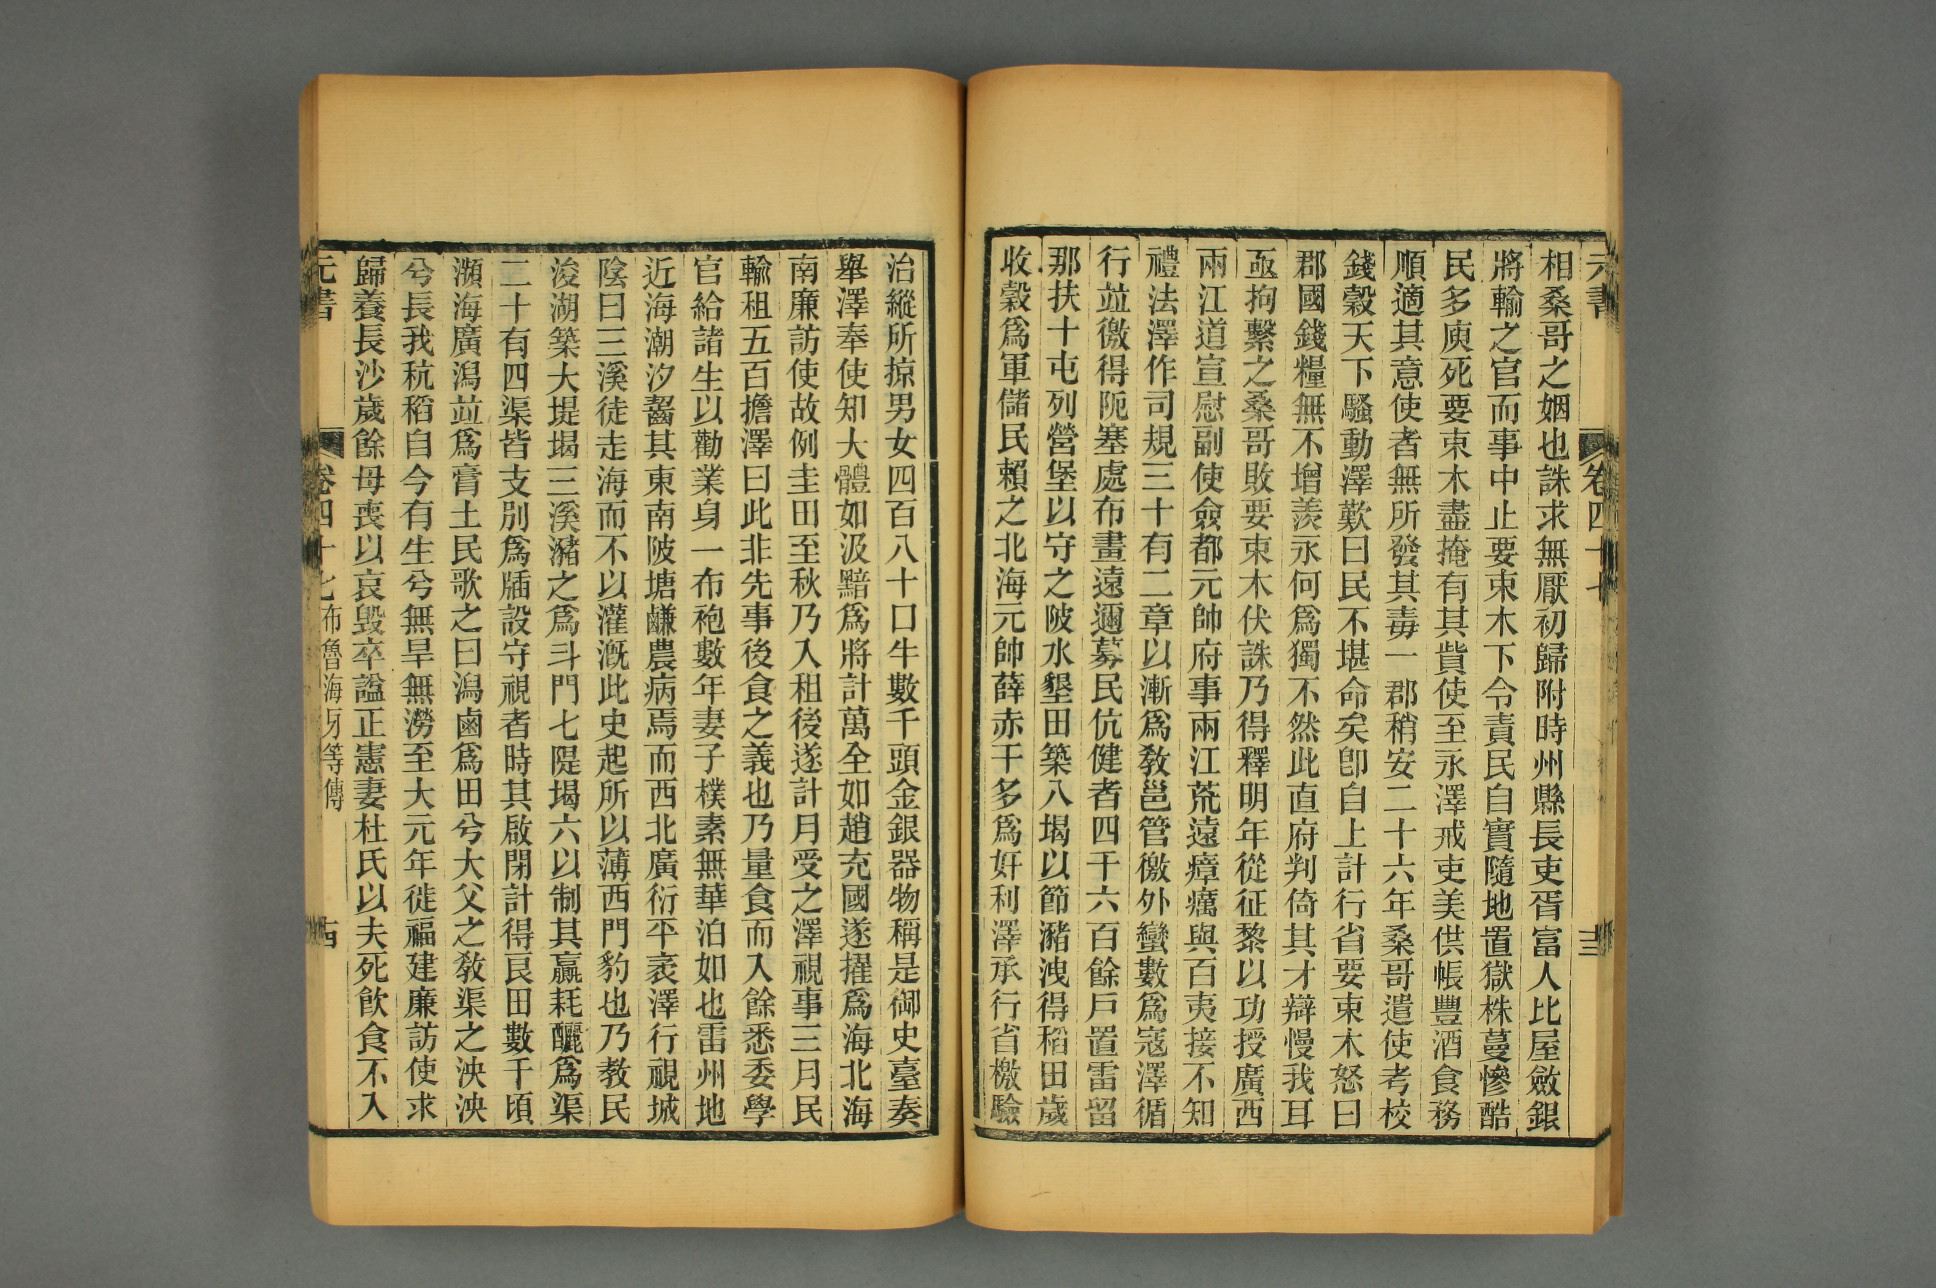 元書
卷四十七
十三
相桑哥之姻也誅求無厭初歸附時州縣長吏胥富人比屋斂銀
將輸之官而事中止要束木下令責民自實隨地置獄株蔓慘酷
民多庾死要束木盡掩有其貲使至永澤戒吏美供帳豐酒食務
順適其意使者無所發其毒一郡稍安二十六年桑哥遣使考校
錢穀天下騷動澤歎曰民不堪命矣卽自上計行省要束木怒曰
郡國錢糧無不增羨永何爲獨不然此直府判倚其才辯慢我耳
亟拘繫之桑哥敗要束木伏誅乃得釋明年從征黎以功授廣西
兩江道宣慰副使僉都元帥府事兩江荒遠瘴癘與百夷接不知
禮法澤作司規三十有二章以漸爲敎邕管徼外蠻數爲寇澤循
行竝徼得阨塞處布畫遠邇募民伉健者四千六百餘戶置雷留
那扶十屯列營堡以守之陂水墾田築八堨以節瀦洩得稻田歲
收穀爲軍儲民賴之北海元帥薛赤干多爲奸利澤承行省檄驗
治縱所掠男女四百八十口牛數千頭金銀器物稱是御史臺奏
舉澤奉使知大體如汲黯爲將計萬全如趙充國遂擢爲海北海
南廉訪使故例圭田至秋乃入租後遂計月受之澤視事三月民
輸租五百擔澤曰此非先事後食之義也乃量食而入餘悉委學
官給諸生以勸業身一布袍數年妻子樸素無華泊如也雷州地
近海潮汐齧其東南陂塘鹻農病焉而西北廣衍平衺澤行視城
陰曰三溪徒走海而不以灌漑此史起所以薄西門豹也乃教民
浚湖築大堤堨三溪瀦之爲斗門七隄堨六以制其贏耗釃爲渠
二十有四渠皆支別爲牐設守視者時其啟閉計得良田數千頃
瀕海廣潟竝爲膏土民歌之曰潟鹵爲田兮大父之敎渠之泱泱
兮長我秔稻自今有生兮無旱無澇至大元年徙福建廉訪使求
歸養長沙歲餘母喪以哀毀卒謚正憲妻杜氏以夫死飮食不入
元書
卷四十七布魯海牙等傳
十四